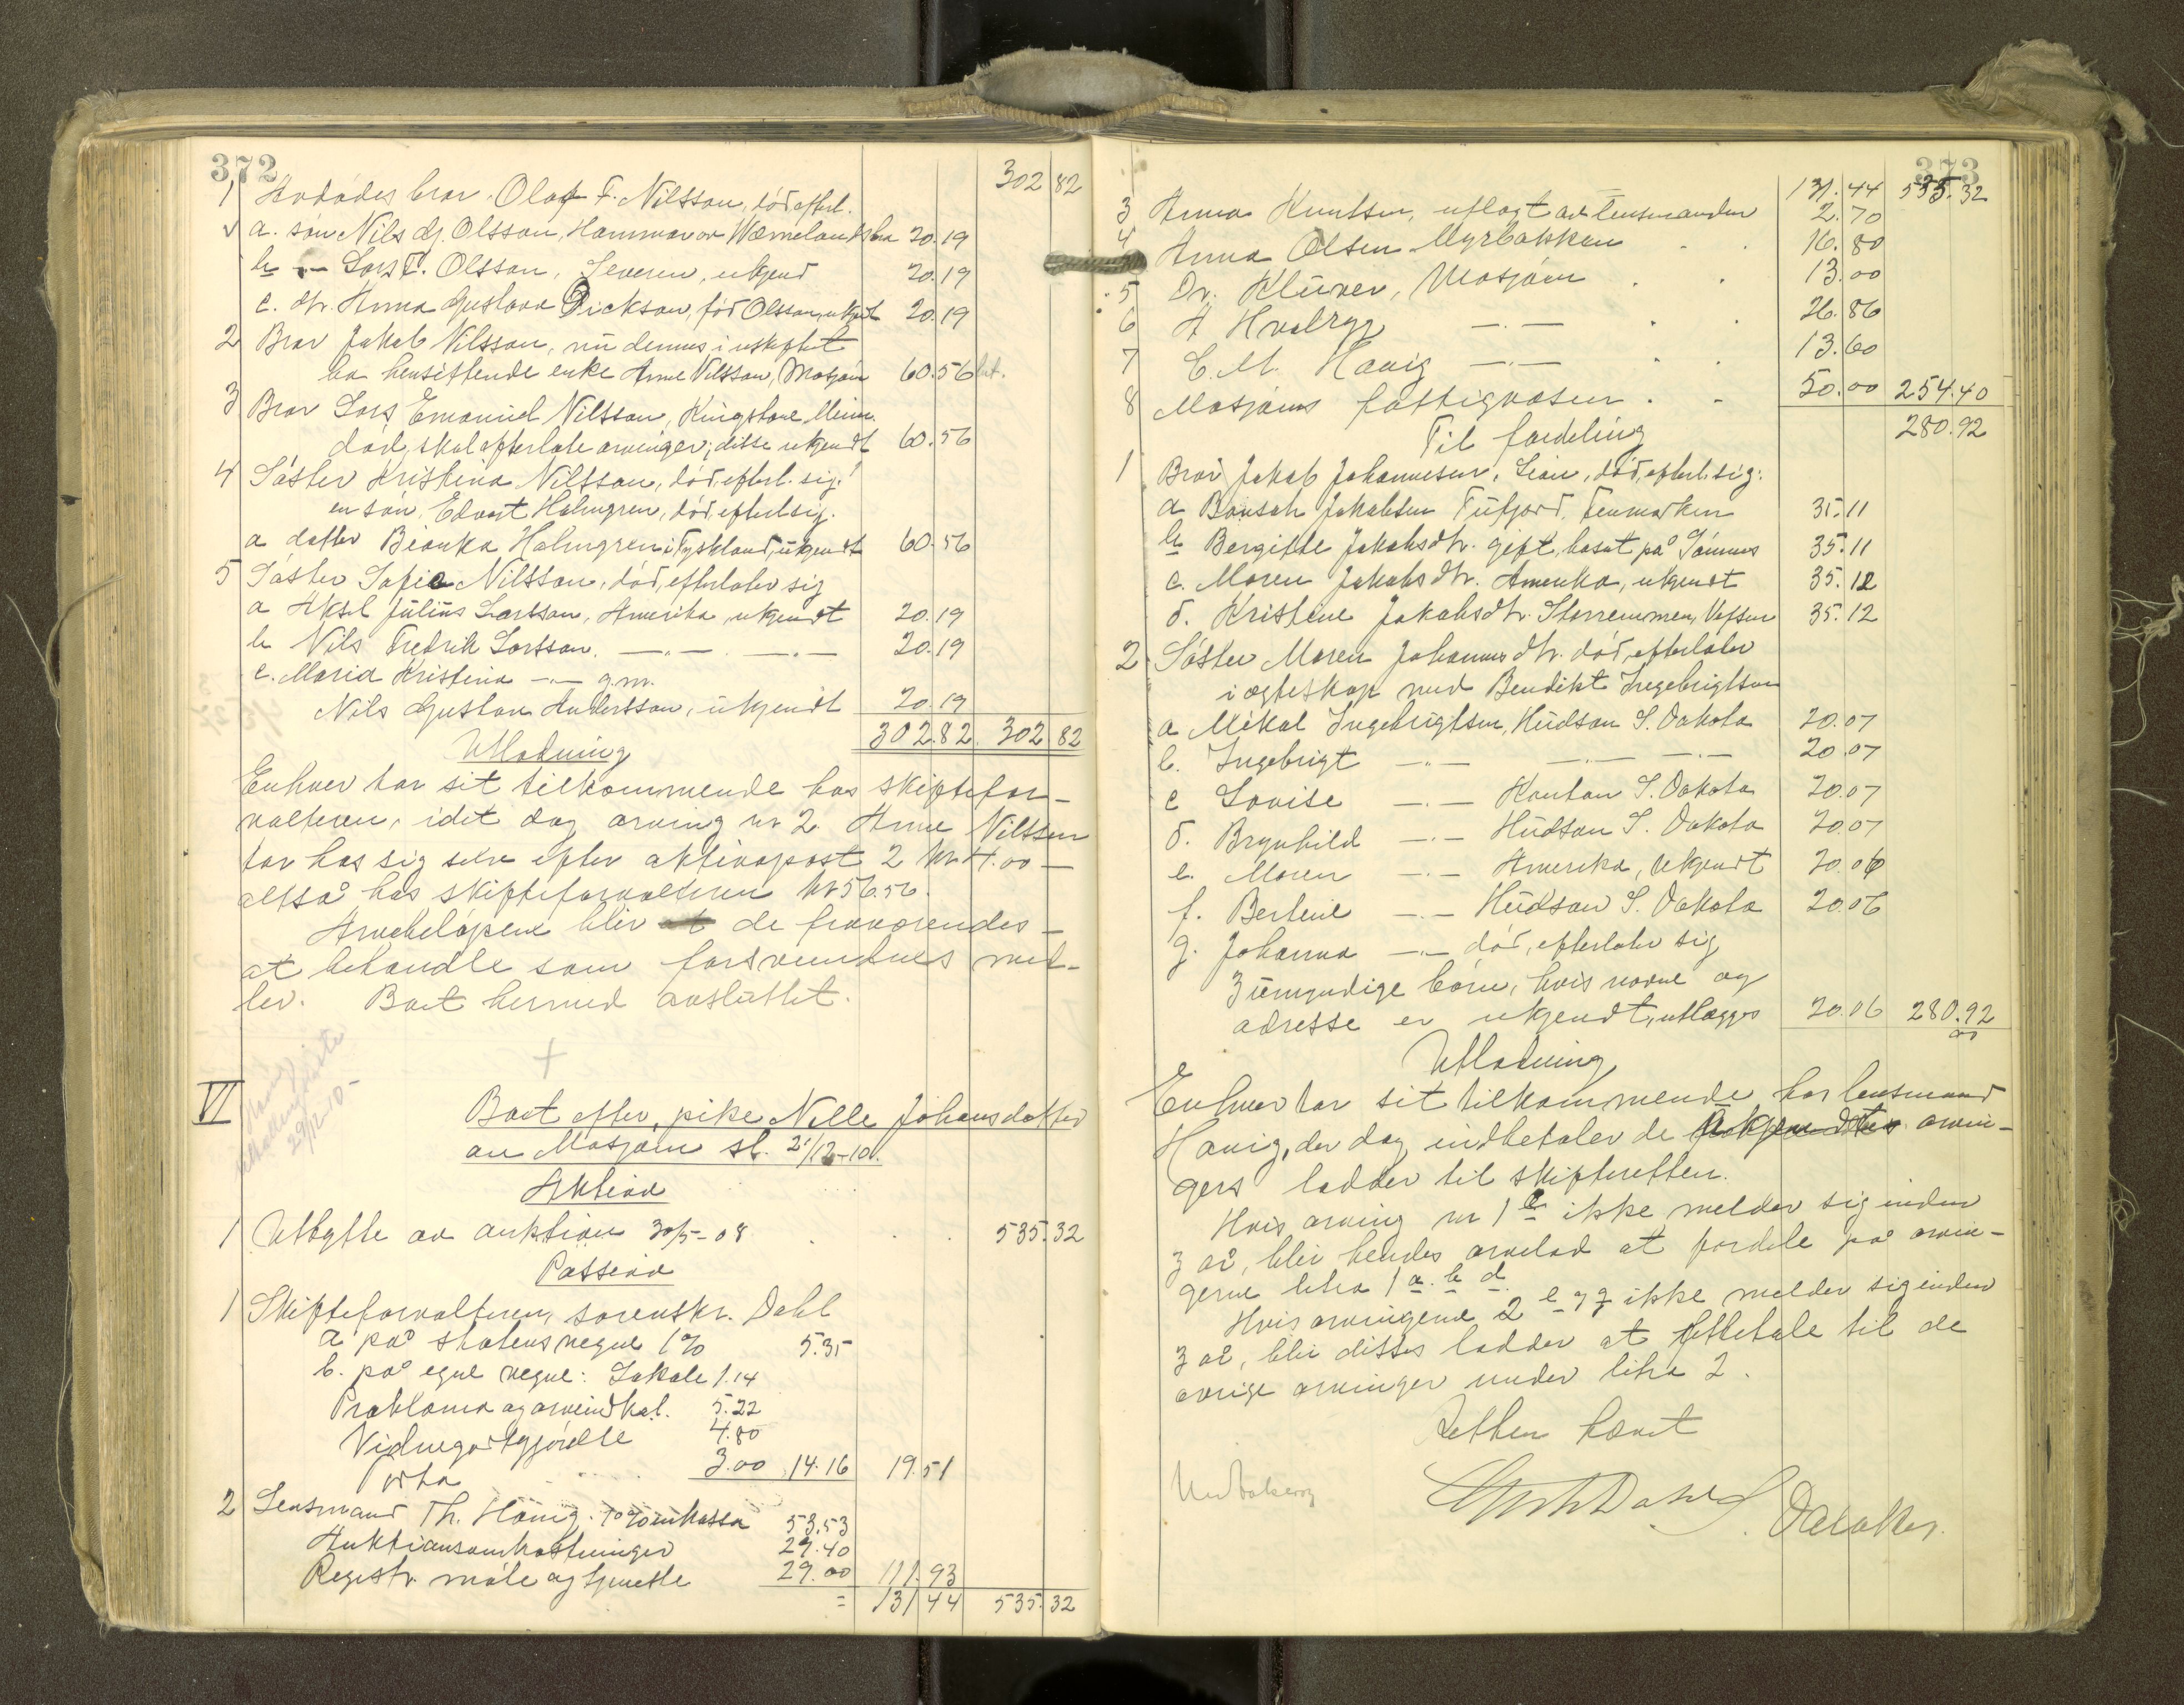 372
302 82
1 Avdødes bror Olof F. Nilsson, død, efterl.
a. søn Nils G. Olsson, Hammar av Wærmelandsbn 20.19
b -"- Lars F. Olsson, Severen, ukjend 20.19
c. dtr. Anna Gustava Dickson, født Olsson, ukjent 20.19
2 Bror Jakob Nilsson, nu dennes i uskiftet
bo hensittende enke Anne Nilsson, Mosjøen 60.56
3 Bror Lars Emanuel Nilsson, Kingstone Minn.
død, skal efterlate arvinger; disse ukjendt 60.56
4 Søster Kristina Nilsson, død, efterl. sig:
en søn, Edvart Holmgren, død, efterl. sig.
a datter Bianka Holmgren i Tyskland, ukjendt 60.56
5 Søster Sofie Nilsson, død, efterlater sig
a Aksel Julius Larsson, Amerika, ukjendt 20.19
b Nils Fredrik Larsson -"- -"- 20.19
c. Maria Kristina -"- g.m.
Nils Gustav Andersson, ukjendt 20.19
302.82 302 82
Utlodning
Enhver tar sit tilkommende hos skiftefor-
valteren, idet dog arving nr 2 Anne Nilsson
tar hos sig selv efter aktivapost 2 kr 4.00 -
altsaa hos skifteforvalteren kr 56.56.
Arvebeløpene blir de fraværendes -
at behandle som forsvundnes mid-
ler. Boet hermed avsluttet.
29/12-10-
VI Boet efter pike Nelle Johansdatter
av Mosjøen sl. 21/12-10.
Aktiva
1 Utbytte av auktion 30/5-08 . . . 535.32
Passiva
1 Skifteforvalteren, sorenskr. Dahl
a paa statens vegne 1% 5.35
b. paa egne vegne: Lokale 1.14
Proklama og arveindkal. 5.22
Vidnegodtgjørelse 4.80
Porto 3.00 14.16 19.51
2 Lensmand Th. Havig: 10% inkasso 53.53
Auktionsomkostninger 29.40
Registr. møte og tjeneste 29.00 111.93
= 131 44 535.32
373
131.44 535.32
3 Anna Knutsen, utlagt av lensmanden 2.70
4 Anna Olsen Myrbakken . . 16.80
5 Dr. Klüver, Mosjøen . . 13.00
6 A Hvalryg -"- . . 26.86
7 C. M. Havig -"- . . 13.60
8 Mosjøens fattigvæsen . . 50.00 254.40
Til fordeling 280.92
1 Bror Jakob Johannesen, Lien, død, efterl. sig:
a Bonsak Jakobsen Tufjord, Finmarken 35.11
b Bergitte Jakobsdtr. gift, bosat paa Tømmes 35.11
c. Maren Jakobsdtr. Amerika, ukjendt 35.12
d. Kristine Jakobsdtr. Storremmen, Vefsen 35.12
2 Søster Maren Johannesdtr. død, efterlater
i ægteskap med Bendikt Ingebrigtsen
a Mikal Ingebrigtsen, Hudson S. Dakota 20.07
b. Ingebrigt -"- -"- -"- 20.07
c Lovise -"- Kanton S. Dakota 20.07
d. Brynhild -"- Hudson S. Dakota 20.07
e. Maren -"- Amerika, ukjendt 20.06
f. Bertine -"- Hudson S. Dakota 20.06
g. Johanna -"- død, efterlater sig
3 umyndige børn, hvis navne og
adresse er ukjendt, utlægges 20.06 280.92
Utlodning
Enhver tar sit tilkommende hos lensmand
Havig, der dog indbetaler de arvin-
gers lodder til skifteretten.
Hvis arving nr 1 c ikke melder sig inden
3 aar, blir hendes arvelod at fordele paa arvin-
gerne litra 1 a. b d.
Hvis arvingerne 2 e og g ikke melder sig inden
3 aar, blir disses lodder at utbetale til de
øvrige arvinger under litra 2.
Retten hævet